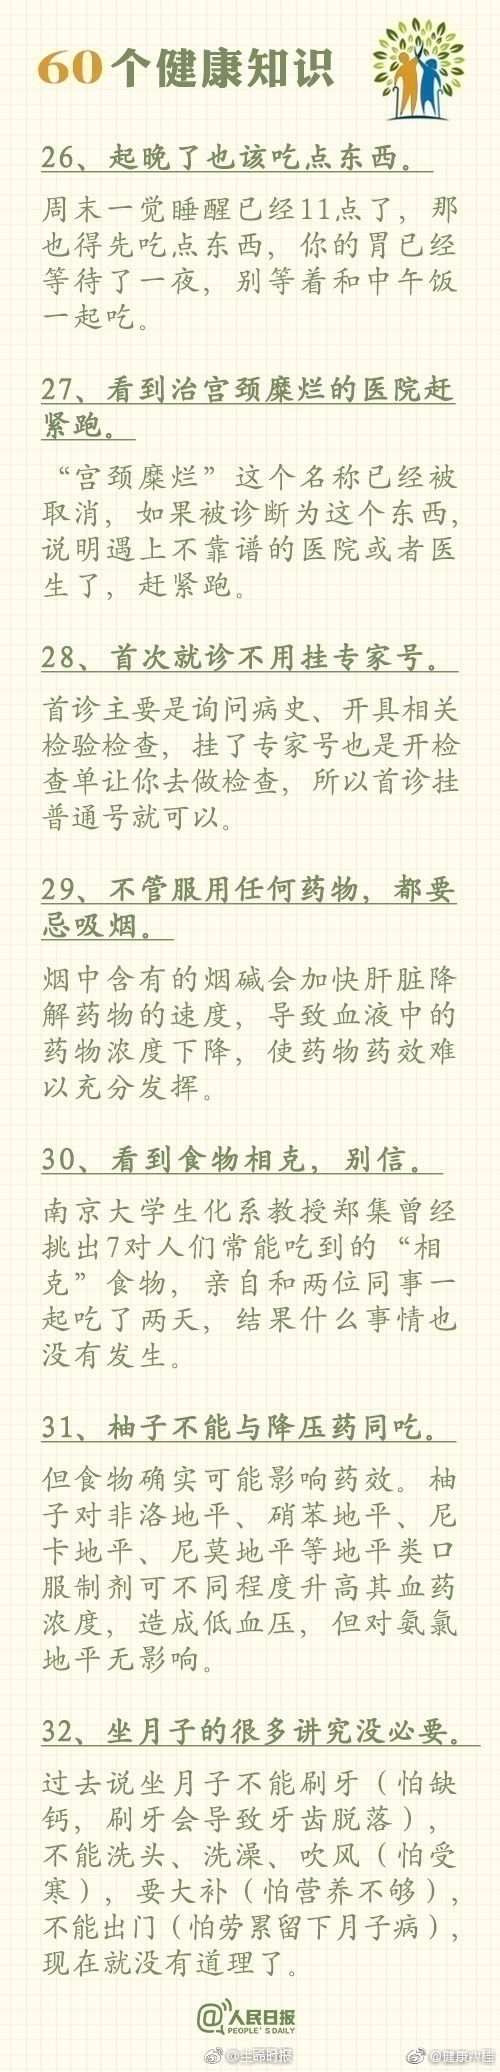 60个健康知识
26、起晚了也该吃点东西。
周末一觉睡醒已经11点了，那
也得先吃点东西，你的胃已经
等待了一夜，别等着和中午饭
一起吃。
27、看到治宫颈糜烂的医院赶
紧跑。
“宫颈糜烂”这个名称已经被
取消，如果被诊断为这个东西，
说明遇上不靠谱的医院或者医
生了，赶紧跑。
28、首次就诊不用挂专家号。
首诊主要是询问病史、开具相关
检验检查，挂了专家号也是开检
查单让你去做检查，所以首诊挂
普通号就可以。
29、不管服用任何药物，都要
忌吸烟。
烟中含有的烟碱会加快肝脏降
解药物的速度，导致血液中的
药物浓度下降，使药物药效难
以充分发挥。
30、看到食物相克，别信。
南京大学生化系教授郑集曾经
挑出7对人们常能吃到的“相
克”食物，亲自和两位同事一
起吃了两天，结果什么事情也
没有发生。
31、柚子不能与降压药同吃。
但食物确实可能影响药效。柚
子对非洛地平、硝苯地平、尼
卡地平、尼莫地平等地平类口
服制剂可不同程度升高其血药
浓度，造成低血压，但对氨氯
地平无影响。
32、坐月子的很多讲究没必要。
过去说坐月子不能刷牙（怕缺
钙，刷牙会导致牙齿脱落），
不能洗头、洗澡、吹风（怕受
寒），要大补（怕营养不够），
不能出门（怕劳累留下月子病），
现在就没有道理了。
@人民日报
PEOPLE'S DAILY
@生命时报